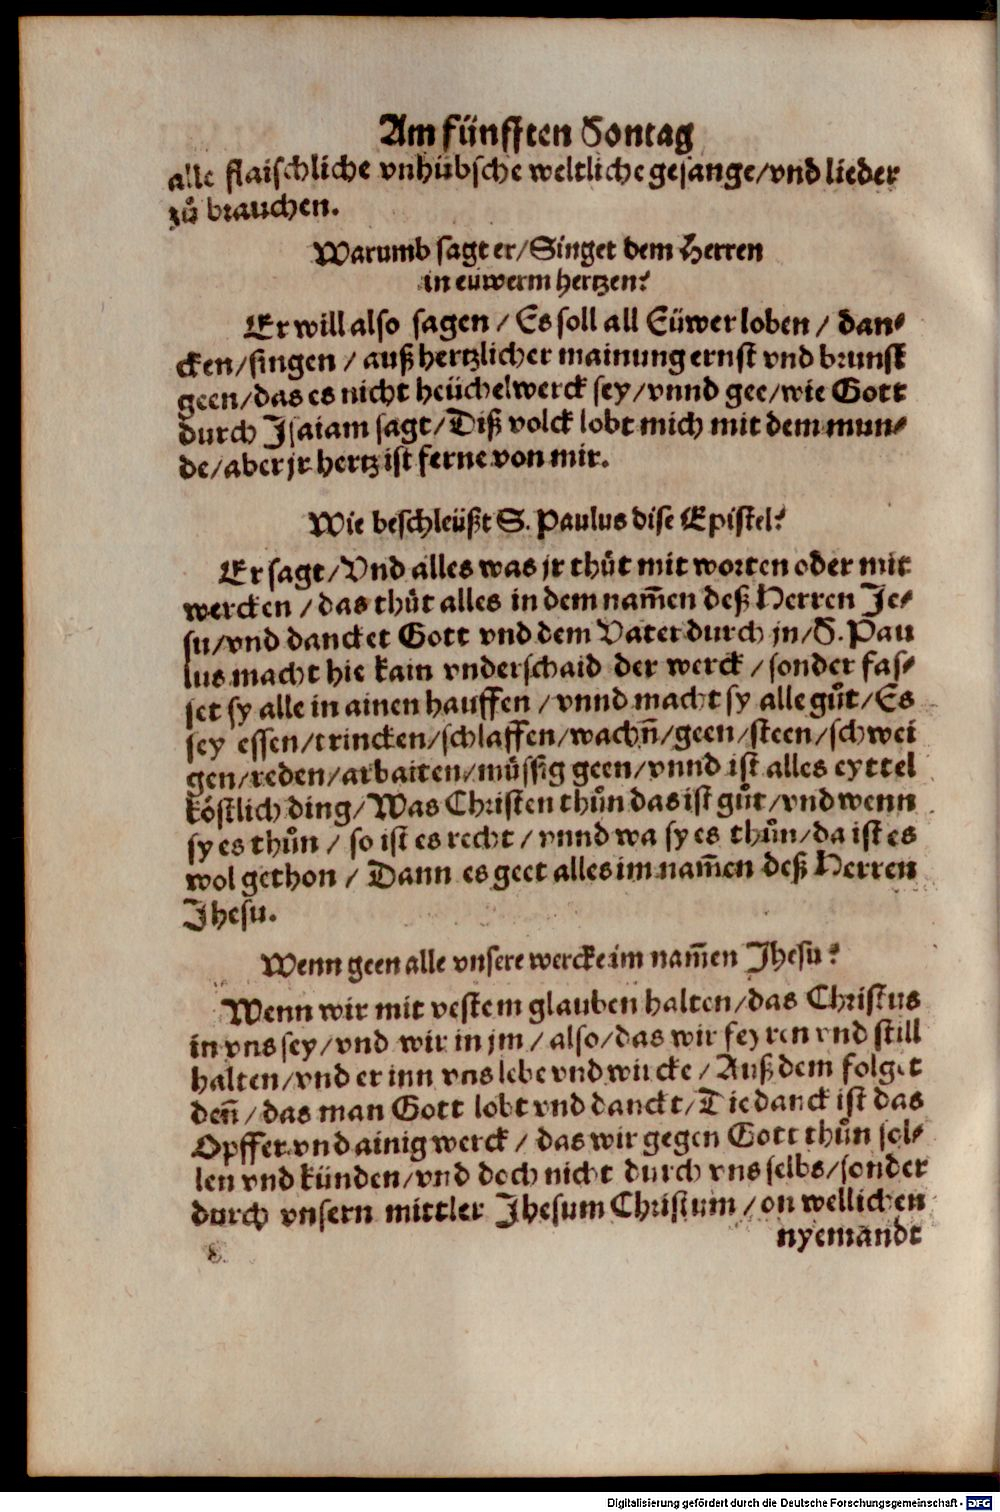 Am fünfften Sontag
alle flaischliche vnhübsche weltliche gesange/vnd lieder
zů brauchen.
Warumb sagt er/Singet dem Herren
in euwerm hertzen?
Er will also sagen / Es soll all Eüwer loben / dan-
cken/singen / auß hertzlicher mainung ernst vnd brunst
geen/das es nicht heüchelwerck sey/vnnd gee/wie Gott
durch Isaiam sagt/Diß volck lobt mich mit dem mun-
de/aber jr hertz ist ferne von mir.
Wie beschleüßt S. Paulus dise Epistel?
Er sagt/Vnd alles was jr thůt mit worten oder mit
wercken / das thůt alles in dem nam̃en deß Herren Je-
su/vnd dancket Gott vnd dem Vater durch jn/S. Pau
lus macht hie kain vnderschaid der werck / sonder fas-
set sy alle in ainen hauffen / vnnd macht sy alle gůt/Es
sey essen/trincken/schlaffen/wachñ/geen/steen/schwei
gen/reden/arbaiten/müssig geen/vnnd ist alles eyttel
köstlich ding/Was Christen thůn das ist gůt/vnd wenn
sy es thůn / so ist es recht / vnnd wa sy es thůn/da ist es
wol gethon / Dann es geet alles im nam̃en deß Herren
Jhesu.
Wenn geen alle vnsere wercke im nam̃en Jhesu?
Wenn wir mit vestem glauben halten/das Christus
in vns sey/vnd wir in jm / also/das wir feyren vnd still
halten/vnd er inn vns lebe vnd wircke / Auß dem folget
deñ / das man Gott lobt vnd danckt/Die danck ist das
Opffer vnd ainig werck / das wir gegen Gott thůn sol-
len vnd künden/vnd doch nicht durch vns selbs/sonder
durch vnsern mittler Jhesum Christum / on wellichen
nyemandt
Digitalisierung gefördert durch die Deutsche Forschungsgemeinschaft - DFG